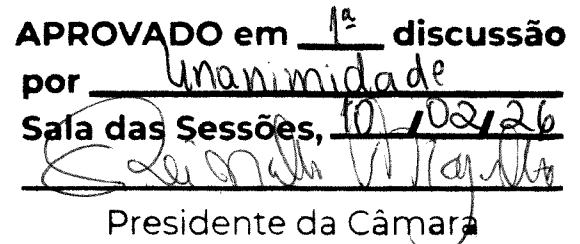 APROVADO em 1ª discussão
por Unanimidade
Sala das Sessões, 10 / 02 / 26
Presidente da Câmara